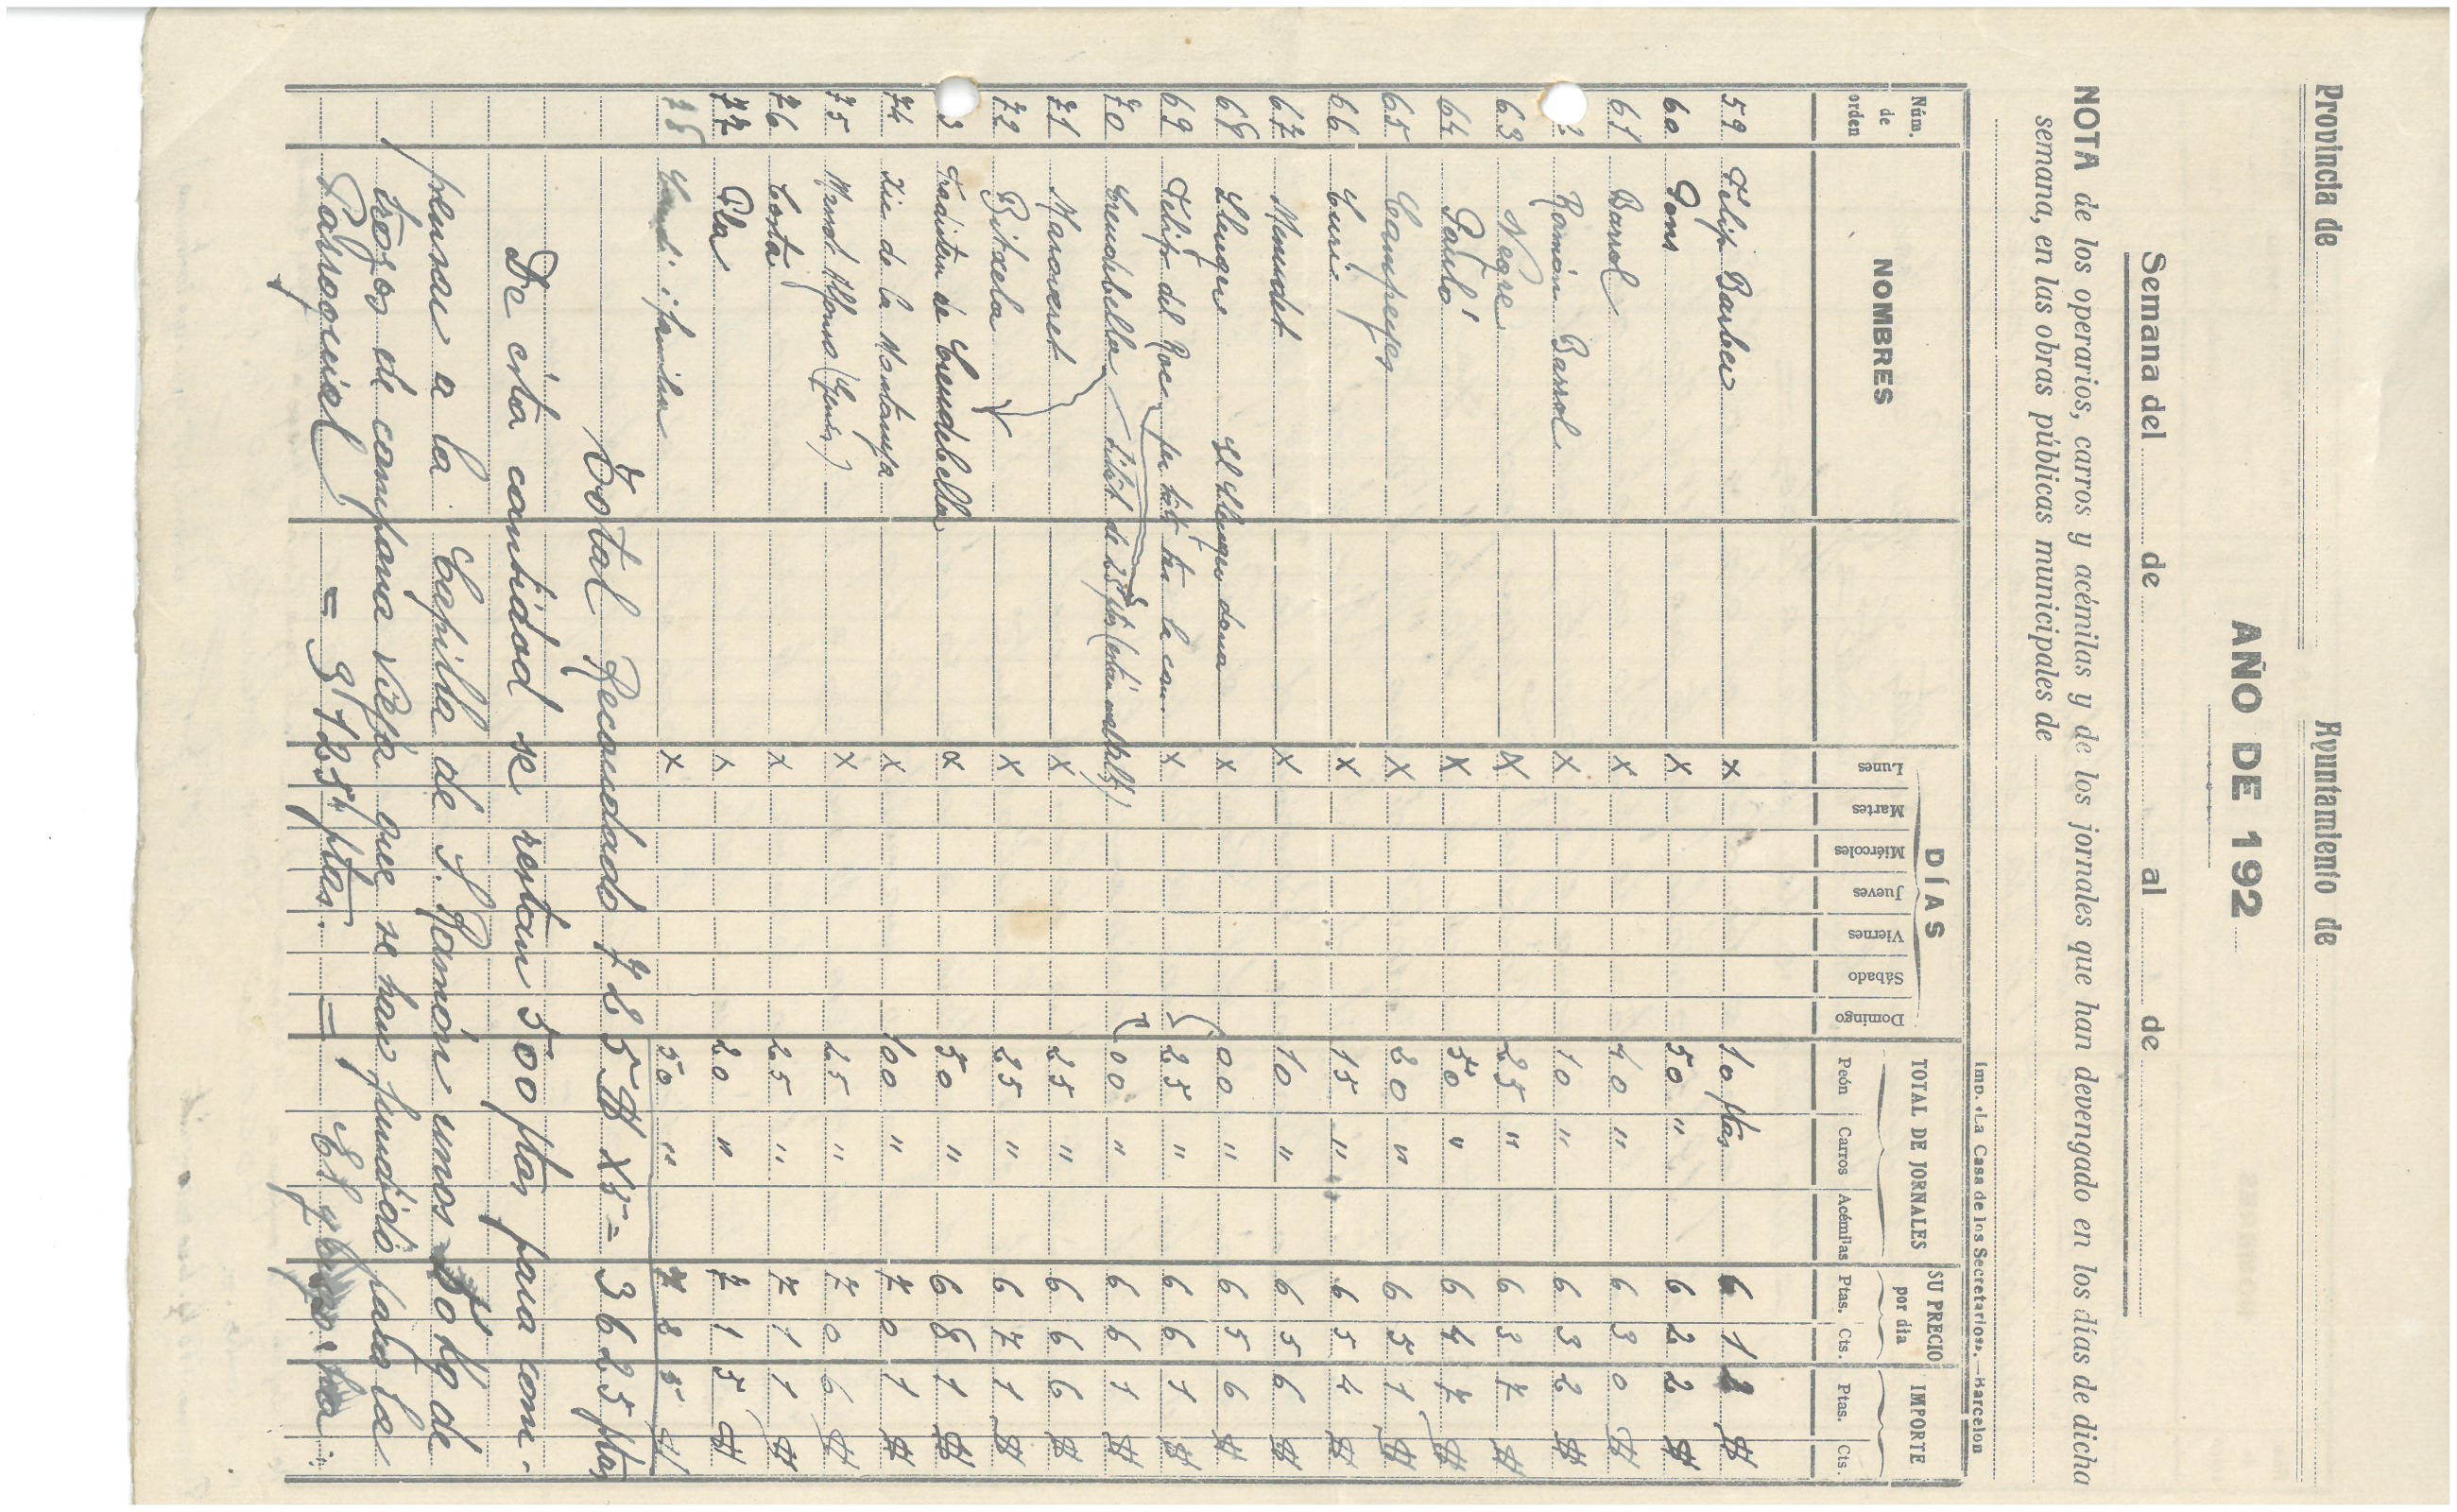 Provincia de Ayuntamiento de
AÑO DE 192
Semana del de al de
NOTA de los operarios, carros y acémilas y de los jornales que han devengado en los días de dicha
semana, en las obras públicas municipales de
Imp. «La Casa de los Secretarios».—Barcelon
Núm. de orden NOMBRES DÍAS TOTAL DE JORNALES SU PRECIO por dia IMPORTE
Lunes Martes Miércoles Jueves Viernes Sábado Domingo Peón Carros Acémilas Ptas. Cts. Ptas. Cts.
59 Felip Barber x 10 ptas 6 1 2 ₶
60 Pons x 50 " 6 2 2 ₶
61 Barrol x 10 " 6 3 0 ₶
2 Ramón Barrol x 10 " 6 3 2 ₶
63 Negre x 25 " 6 3 7 ₶
64 Pauló x 50 " 6 4 7 ₶
65 Campeyos x 20 " 6 5 1 ₶
66 Curi x 15 " 6 5 4 ₶
67 Menudet x 10 " 6 5 6 ₶
68 Llengue El Llengue dona x 00 " 6 5 6 ₶
69 Felip del Roc per tot fer la cam. x 25 " 6 6 1 ₶
70 Creudebella 25 ptas 00 " 6 6 1 ₶
71 Maraveret x 25 " 6 6 6 ₶
72 Bitxela x 25 " 6 7 1 ₶
3 Fraditzu de Creudebella x 50 " 6 8 1 ₶
74 Ziu de la Montanya x 100 " 7 0 1 ₶
75 Masot Alfonso (Genís) x 25 " 7 0 6 ₶
76 Costa x 25 " 7 1 1 ₶
77 Pla x 20 " 7 1 5 ₶
78 i familia x 50 " 7 2 5 ₶
Total Recaudado 725 ₶ x 5 = 3625 ptas
De esta cantidad se restan 500 ptas para com-
pensar a la Capilla de S. Ramón unos 50 kg de
trozos de campana vieja que se han fundido para la
Parroquial = 3'125 ptas. =